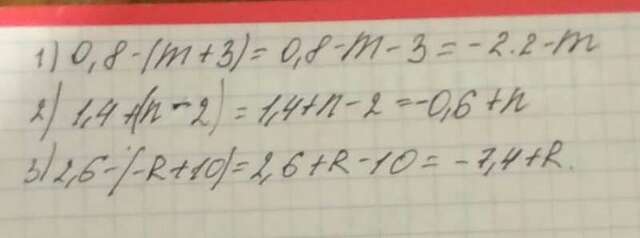 1) 0,8-(m+3)=0,8-m-3=-2.2-m
2) 1,4+(n-2)=1,4+n-2=-0,6+n
3) 2,6-(-R+10)=2,6+R-10=-7,4+R.